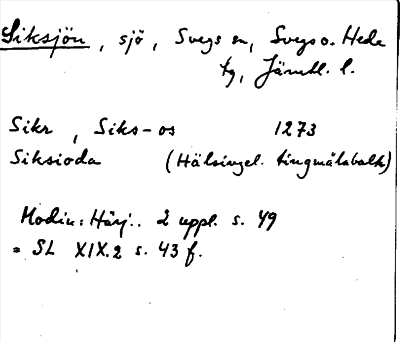 Siksjön, sjö, Svegs sn, Svegs o. Hede
tg, Jämtl. l.
Sikr, Siks-os 1273
Siksioda (Hälsingel. tingmålabalk)
Modin: Härj.. 2 uppl. s. 49
= SL XIX.2 s. 43 f.